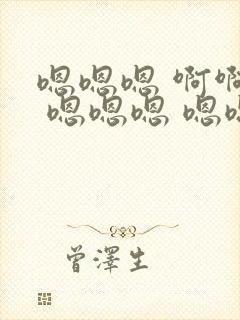 嗯嗯嗯 啊啊
嗯嗯嗯 嗯嗯
曾澤生